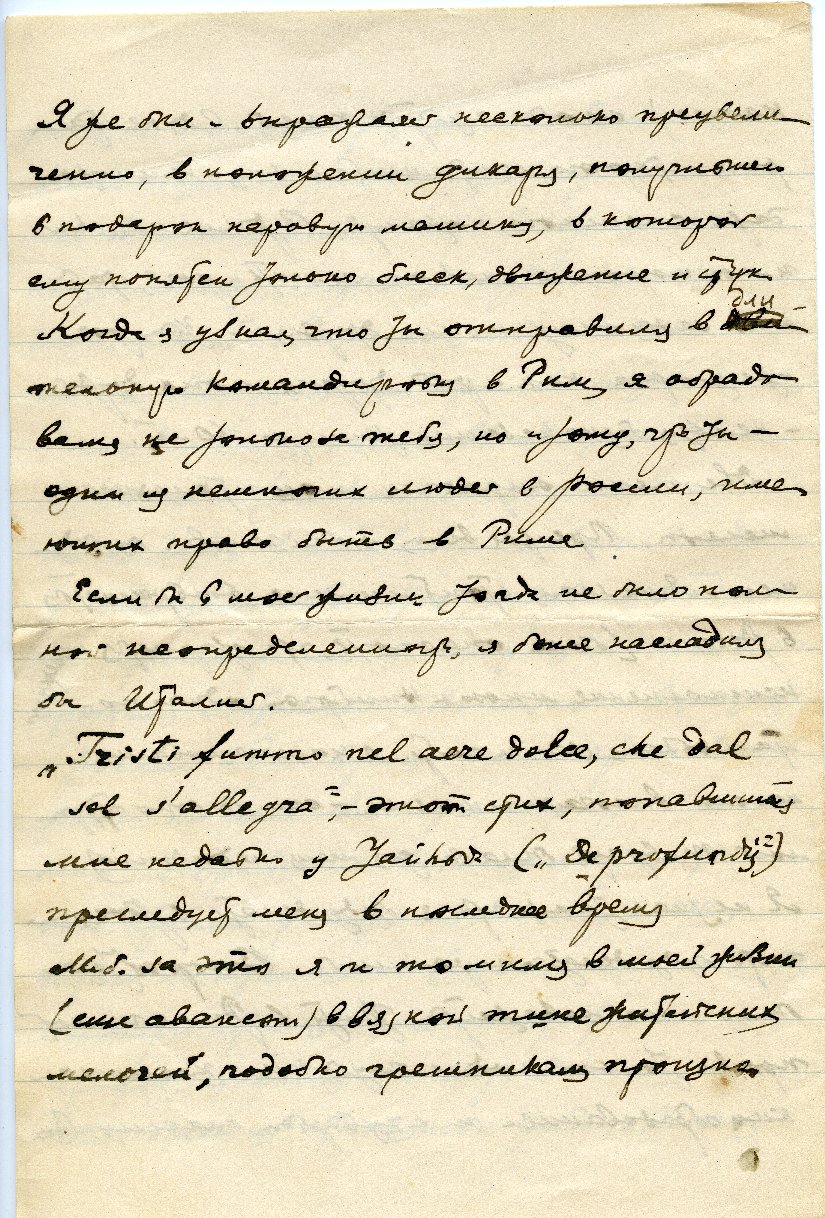 Я же был - выражаясь несколько преувели-
ченно, в положении дикаря, получившего
в подарок паровую машину, в которой
ему понятен только блеск, движение и стук.
Когда я узнал, что ты отправился в дли-
тельную командировку в Рим, я обрадо-
вался не только за тебя, но и тому, что ты —
один из немногих людей в России, име-
ющих право быть в Риме
Если бы в моей жизни тогда не было пол-
ной неопределенности, я более насладился
бы Италией.
„Tristi fummo nel aere dolce, che dal
sol s'allegra", - этот стих, попавшийся
мне недавно у Уайльда („De profundis")
преследует меня в последнее время
М.б. за это я и томился в моей жизни
(еще авансом) в вязкой тине житейских
мелочей, подобно грешникам